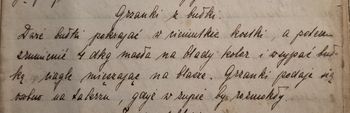 Grzanki z bułki.
Dwie bułki pokrajać w cieniutkie kostki, a potem
zrumienić 4 dkg masła na blady kolor i wsypać buł-
kę, ciągle mięszając na blasze. Grzanki podaje się
osobno na talerzu, gdyż w zupie by rozmokły.